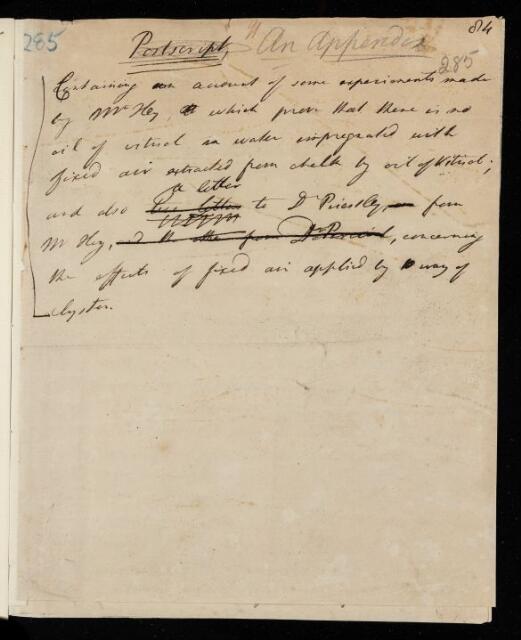 285
84
Postscript, An Appendix
285
Containing an account of some experiments made
by Mr Hey, which prove that there is no
oil of vitriol in water impregnated with
fixed air extracted from chalk by oil of Vitriol;
a letter
and also two letters to Dr Priestley, from
Mr Hey, and the other from Dr Percival, concerning
the effects of fixed air applied by way of
clyster.